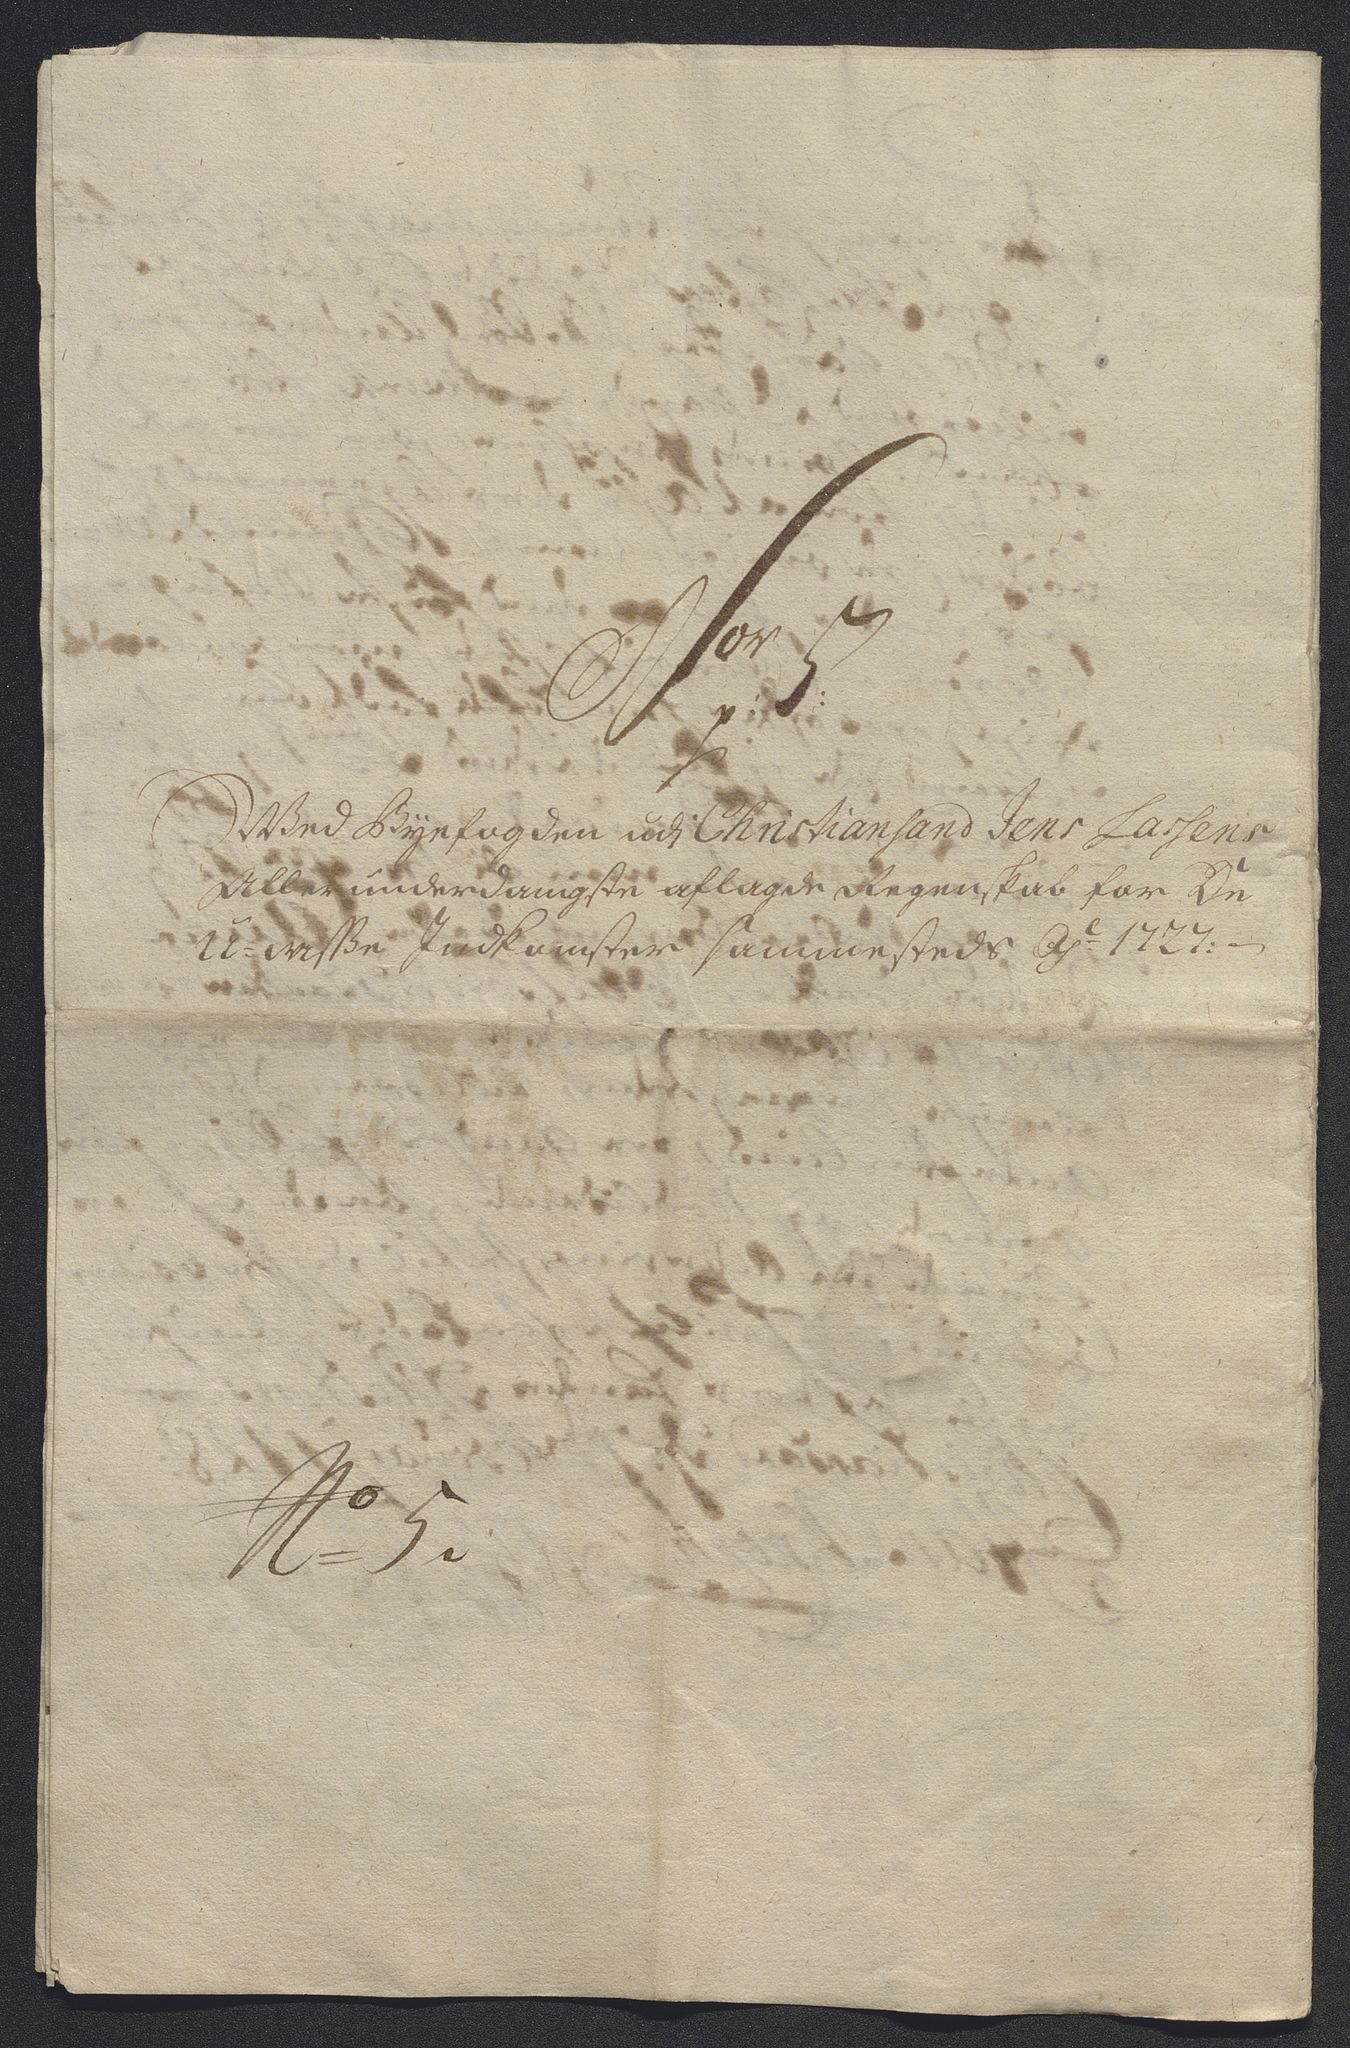 Nor 5
p:
Wed Byefogden udj Christiansand Jens Lassens
Aller underdanigste aflagde Regenskab for De
U=visse Indkomster sammesteds Aõ 1727:
No= 5: